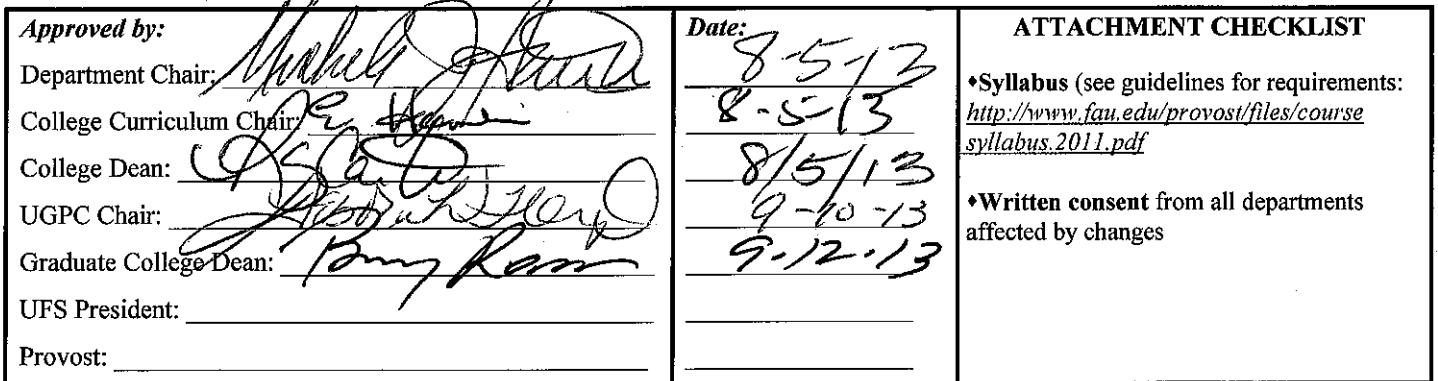 Approved by:
Department Chair:
College Curriculum Chair:
College Dean:
UGPC Chair: Deborah L. Floyd
Graduate College Dean:
UFS President:
Provost:
Date:
8-5-13
8-5-13
8/5/13
9-10-13
9.12.13
ATTACHMENT CHECKLIST
♦Syllabus (see guidelines for requirements:
http://www.fau.edu/provost/files/course
syllabus.2011.pdf
♦Written consent from all departments
affected by changes